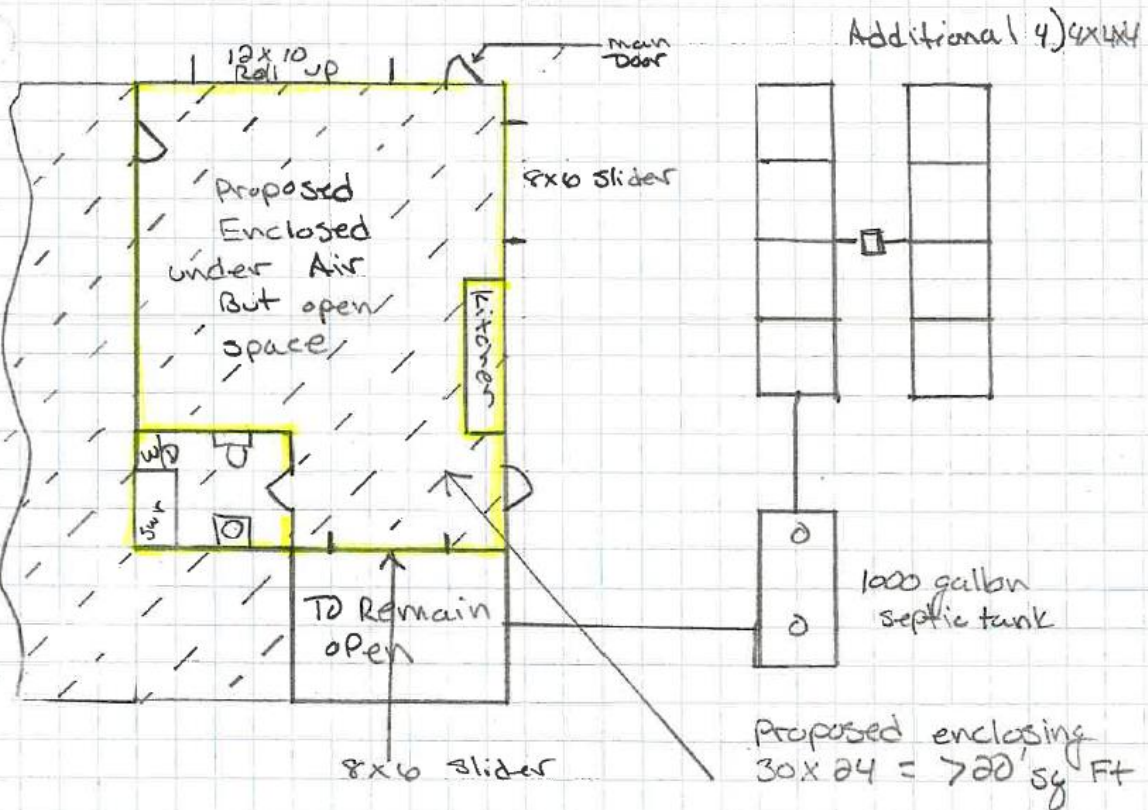 12x10
Roll up
man
Door
Additional 4) 4x4x4
8x6 Slider
Proposed
Enclosed
under Air
But open
space
Kitchen
W/D
Swr
To Remain
open
1000 gallon
septic tank
8x6 Slider
Proposed enclosing
30x24 = 720' sq Ft